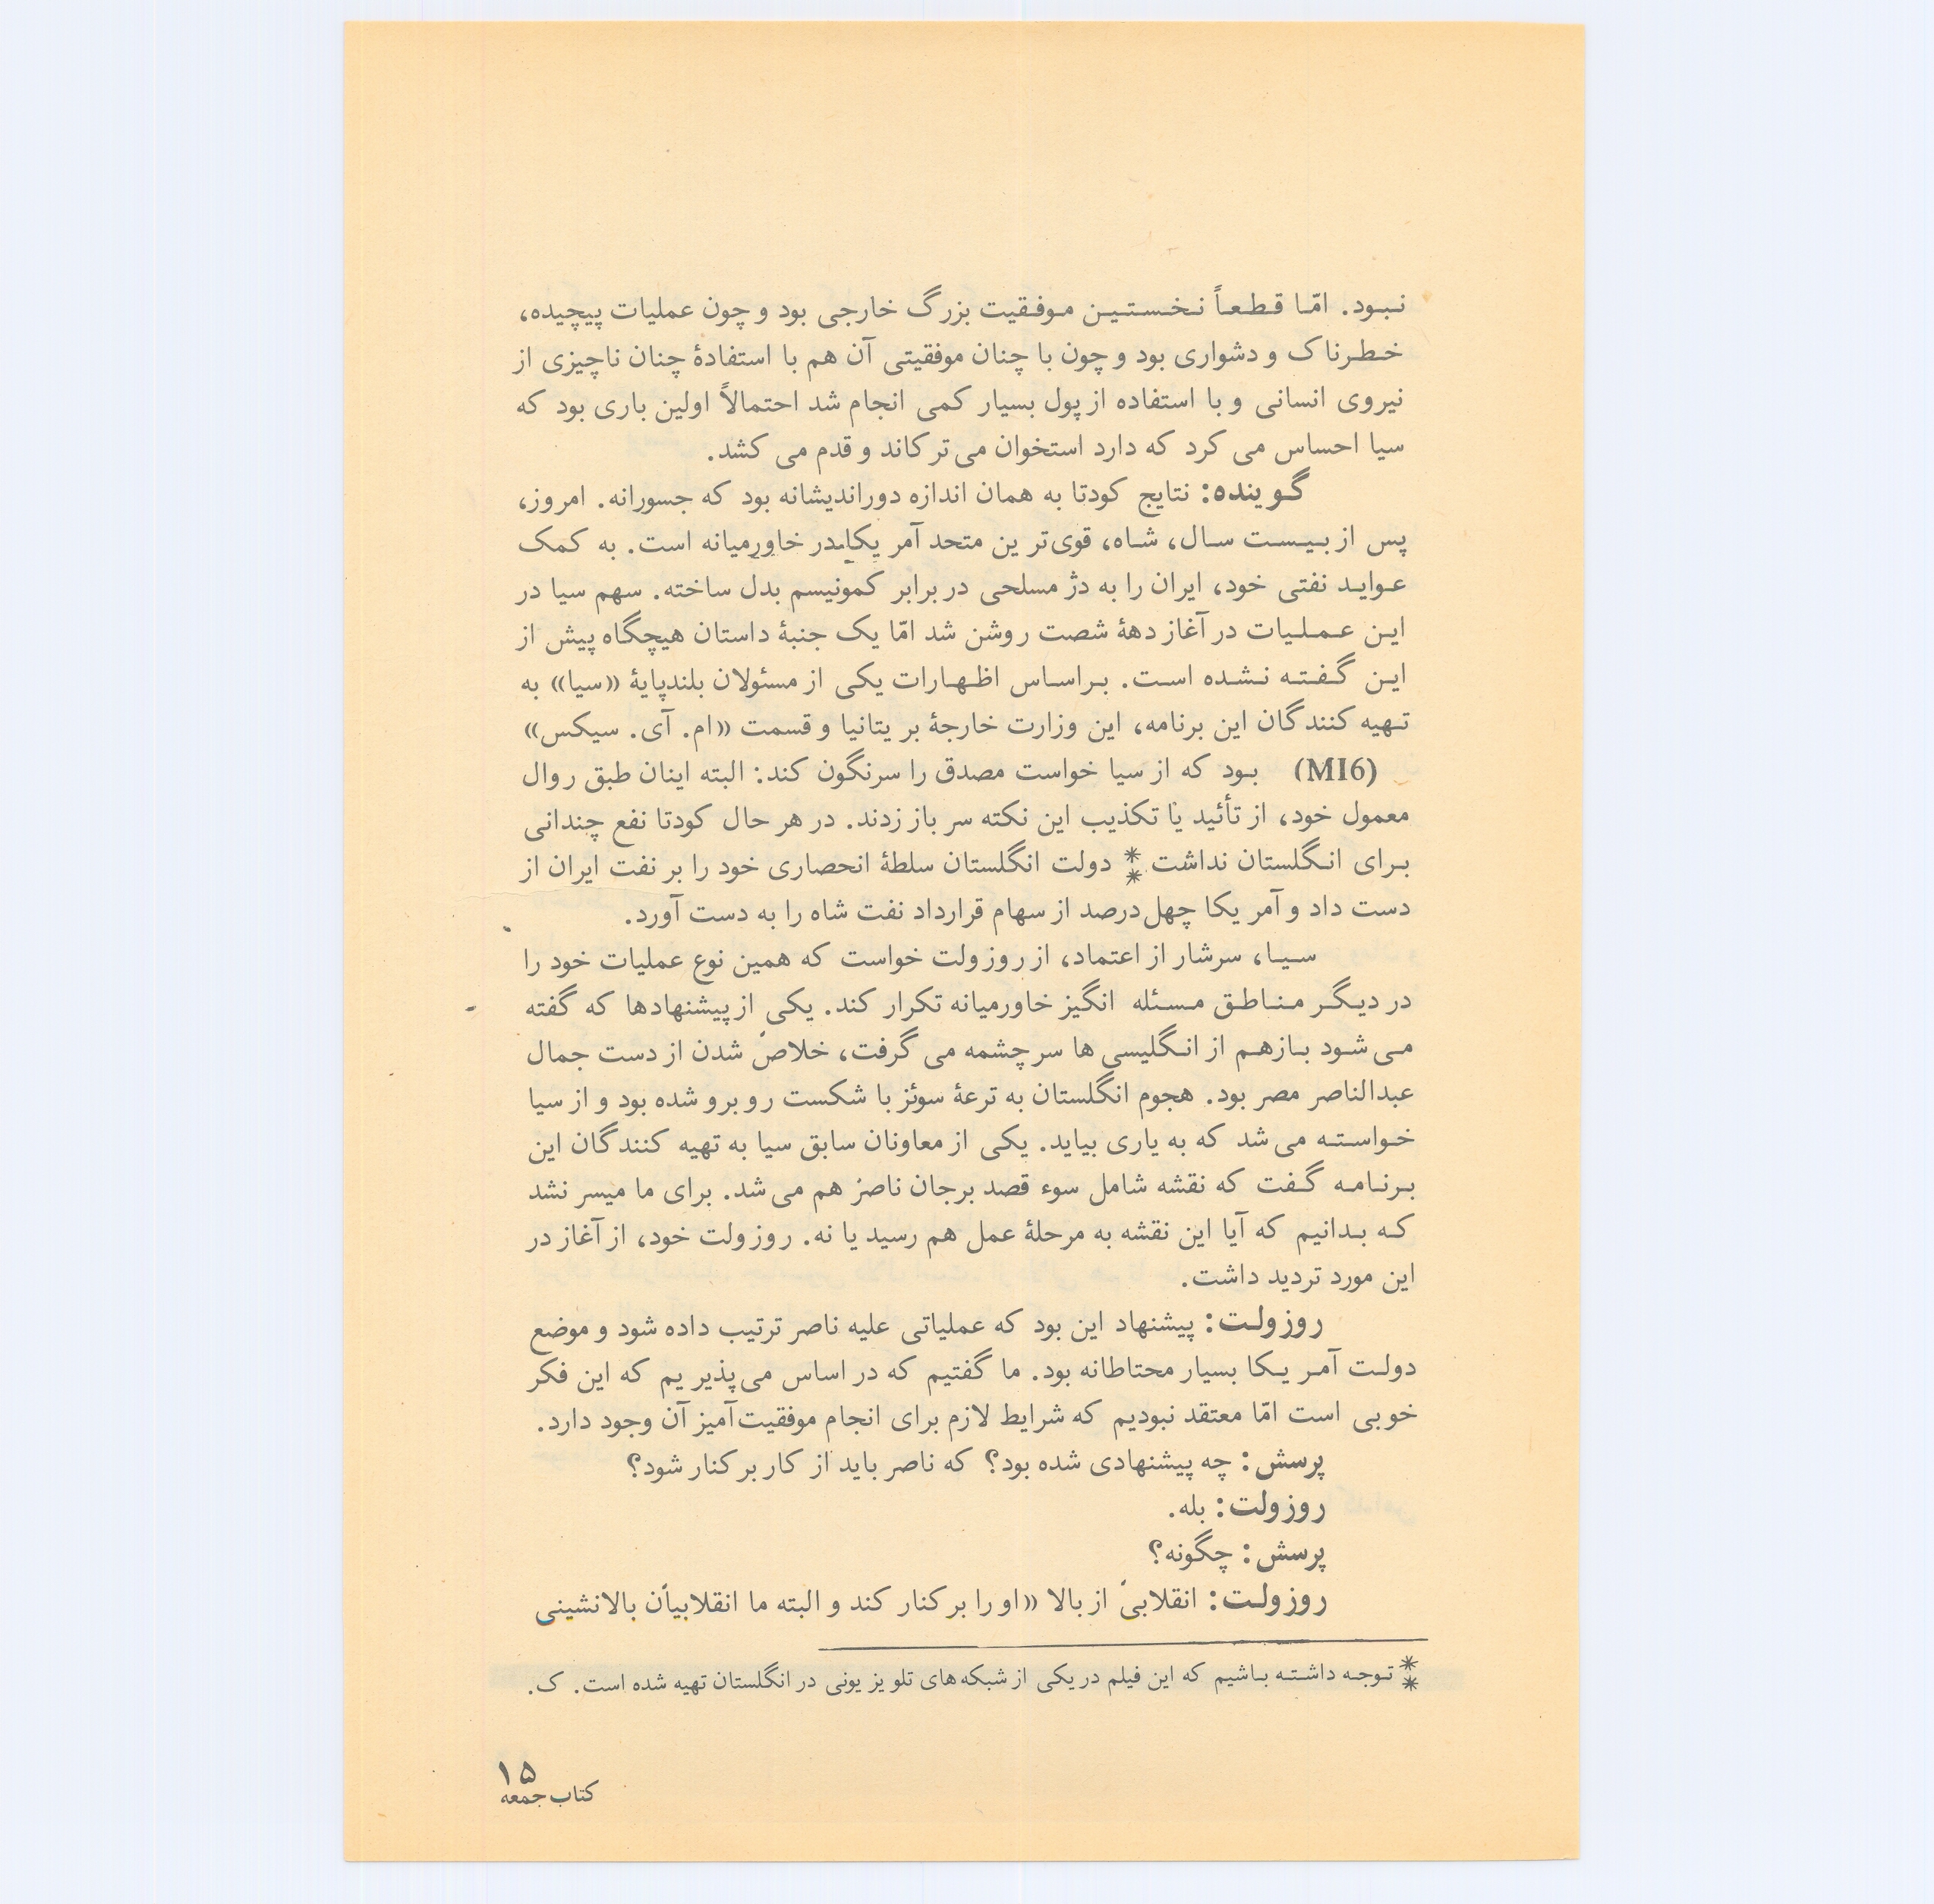 نبود. امّا قطعاً نخستین موفقیت بزرگ خارجی بود و چون عملیات پیچیده،
خطرناک و دشواری بود و چون با چنان موفقیتی آن هم با استفادهٔ چنان ناچیزی از
نیروی انسانی و با استفاده از پول بسیار کمی انجام شد احتمالاً اولین باری بود که
سیا احساس می کرد که دارد استخوان می‌ترکاند و قدم می کشد.
گوینده: نتایج کودتا به همان اندازه دوراندیشانه بود که جسورانه. امروز،
پس از بیست سال، شاه، قوی‌ترین متحد آمریکا در خاورمیانه است. به کمک
عواید نفتی خود، ایران را به دژ مسلحی در برابر کمونیسم بدل ساخته. سهم سیا در
این عملیات در آغاز دههٔ شصت روشن شد امّا یک جنبهٔ داستان هیچگاه پیش از
این گفته نشده است. براساس اظهارات یکی از مسئولان بلندپایهٔ «سیا» به
تهیه کنندگان این برنامه، این وزارت خارجهٔ بریتانیا و قسمت «ام. آی. سیکس»
(MI6) بود که از سیا خواست مصدق را سرنگون کند: البته اینان طبق روال
معمول خود، از تأئید یا تکذیب این نکته سر باز زدند. در هر حال کودتا نفع چندانی
برای انگلستان نداشت⁑ دولت انگلستان سلطهٔ انحصاری خود را بر نفت ایران از
دست داد و آمریکا چهل‌درصد از سهام قرارداد نفت شاه را به دست آورد.
سیا، سرشار از اعتماد، از روزولت خواست که همین نوع عملیات خود را
در دیگر مناطق مسئله انگیز خاورمیانه تکرار کند. یکی از پیشنهادها که گفته
می شود بازهم از انگلیسی ها سرچشمه می گرفت، خلاص شدن از دست جمال
عبدالناصر مصر بود. هجوم انگلستان به ترعهٔ سوئز با شکست روبرو شده بود و از سیا
خواسته می شد که به یاری بیاید. یکی از معاونان سابق سیا به تهیه کنندگان این
برنامه گفت که نقشه شامل سوء قصد برجان ناصر هم می شد. برای ما میسر نشد
که بدانیم که آیا این نقشه به مرحلهٔ عمل هم رسید یا نه. روزولت خود، از آغاز در
این مورد تردید داشت.
روزولت: پیشنهاد این بود که عملیاتی علیه ناصر ترتیب داده شود و موضع
دولت آمریکا بسیار محتاطانه بود. ما گفتیم که در اساس می‌پذیریم که این فکر
خوبی است امّا معتقد نبودیم که شرایط لازم برای انجام موفقیت‌آمیز آن وجود دارد.
پرسش: چه پیشنهادی شده بود؟ که ناصر باید از کار برکنار شود؟
روزولت: بله.
پرسش: چگونه؟
روزولت: انقلابی از بالا «او را برکنار کند و البته ما انقلابیاُن بالانشینی
⁑ توجه داشته باشیم که این فیلم در یکی از شبکه‌های تلویزیونی در انگلستان تهیه شده است. ک.
۱۵
کتاب جمعه